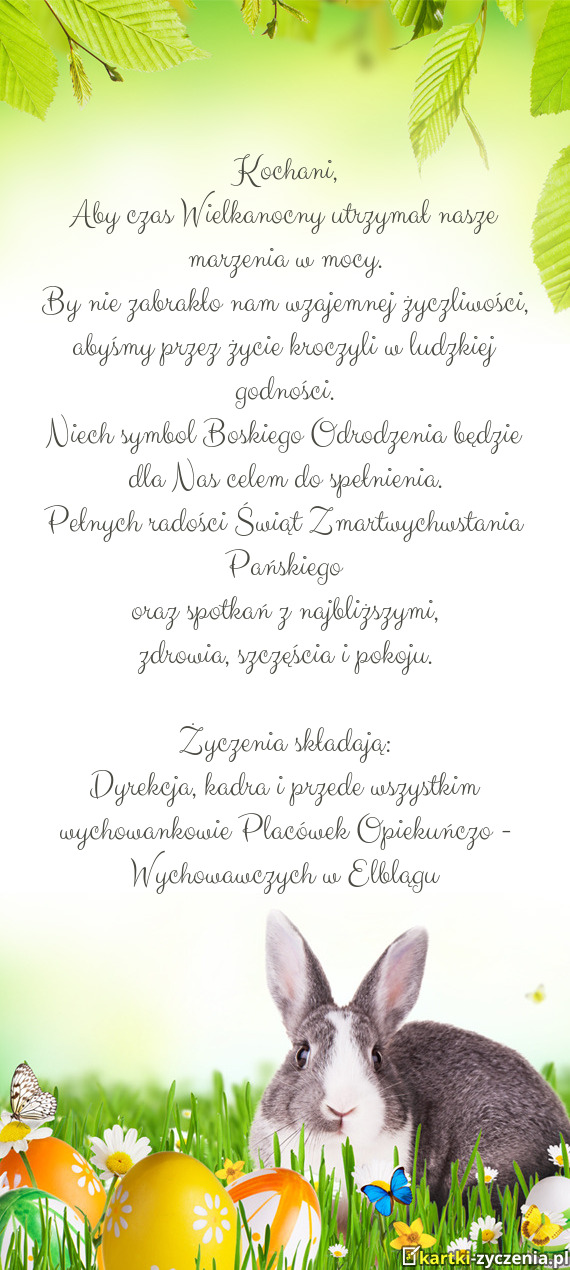 Kochani,
Aby czas Wielkanocny utrzymał nasze
marzenia w mocy.
By nie zabrakło nam wzajemnej życzliwości,
abyśmy przez życie kroczyli w ludzkiej
godności.
Niech symbol Boskiego Odrodzenia będzie
dla Nas celem do spełnienia.
Pełnych radości Świąt Zmartwychwstania
Pańskiego
oraz spotkań z najbliższymi,
zdrowia, szczęścia i pokoju.
Życzenia składają:
Dyrekcja, kadra i przede wszystkim
wychowankowie Placówek Opiekuńczo -
Wychowawczych w Elblągu
kartki-zyczenia.pl